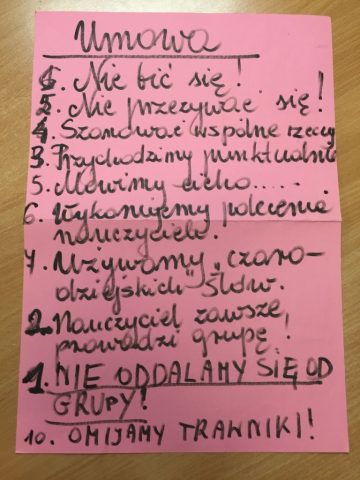 Umowa
6. Nie bić się!
5. Nie przezywać się!
4. Szanować wspólne rzeczy
3. Przychodzimy punktualnie
5. Mówimy cicho.....
6. Wykonujemy polecenia
nauczyciela.
7. Używamy „czaro-
dziejskich" słów.
2. Nauczyciel zawsze
prowadzi grupę!
1. NIE ODDALAMY SIĘ OD
GRUPY!
10. OMIJAMY TRAWNIKI!